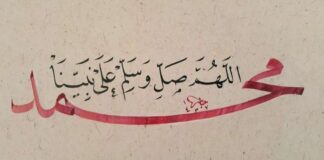 اللَّهُمَّ صَلِّ وَسَلِّمْ عَلَى نَبِيِّنَا
محمد